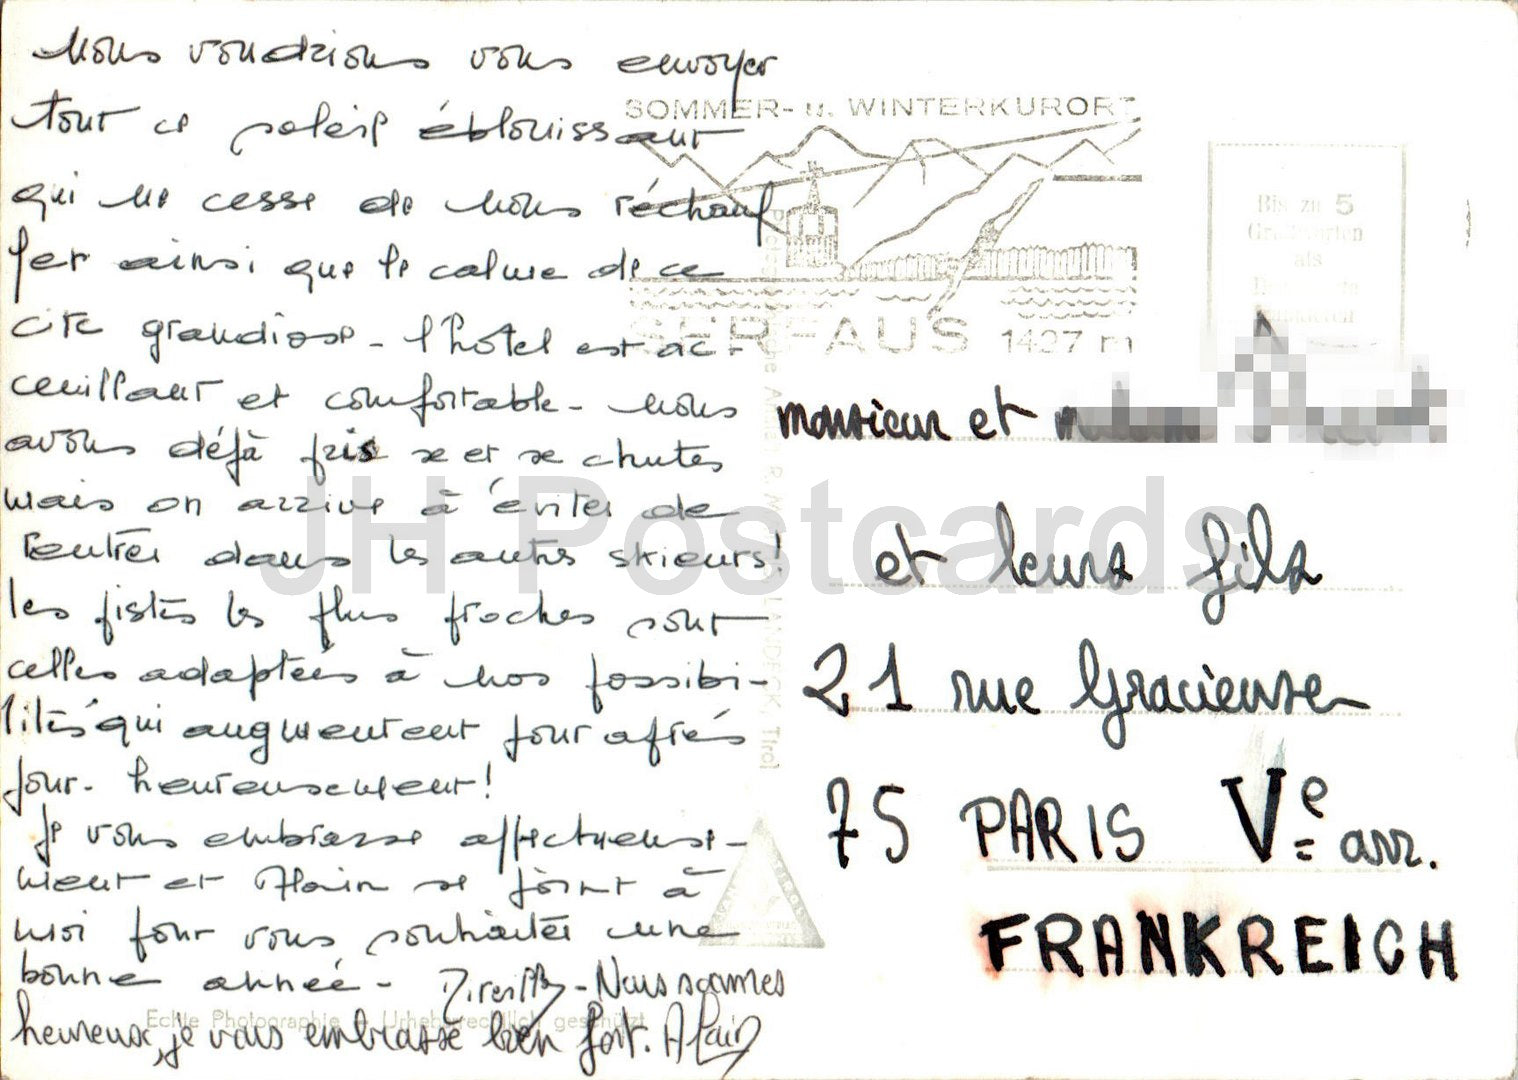 Nous voudrions vous envoyer
tout ce soleil éblouissant
qui ne cesse de nous réchauf
fer ainsi que le calme de ce
site grandiose - l'hôtel est ac-
cueillant et confortable - nous
avons déjà pris xe et xe chutes
mais on arrive à éviter de
rentrer dans les autres skieurs!
les pistes les plus proches sont
celles adaptées à nos possibi-
lités qui augmentent jour après
jour - heureusement!
Je vous embrasse affectueuse-
ment et Alain se joint à
moi pour vous souhaiter une
bonne année - Mireille - Nous sommes
heureux, je vous embrasse bien fort. Alain
SOMMER- u. WINTERKURORT
SERFAUS 1427 m
Bis zu 5
als
monsieur et
et leurs fils
21 rue Gracieuse
75 PARIS Ve arr.
FRANKREICH
LANDECK, Tirol
Echte Photographie - Urheberrechtlich geschützt
JH Postcards